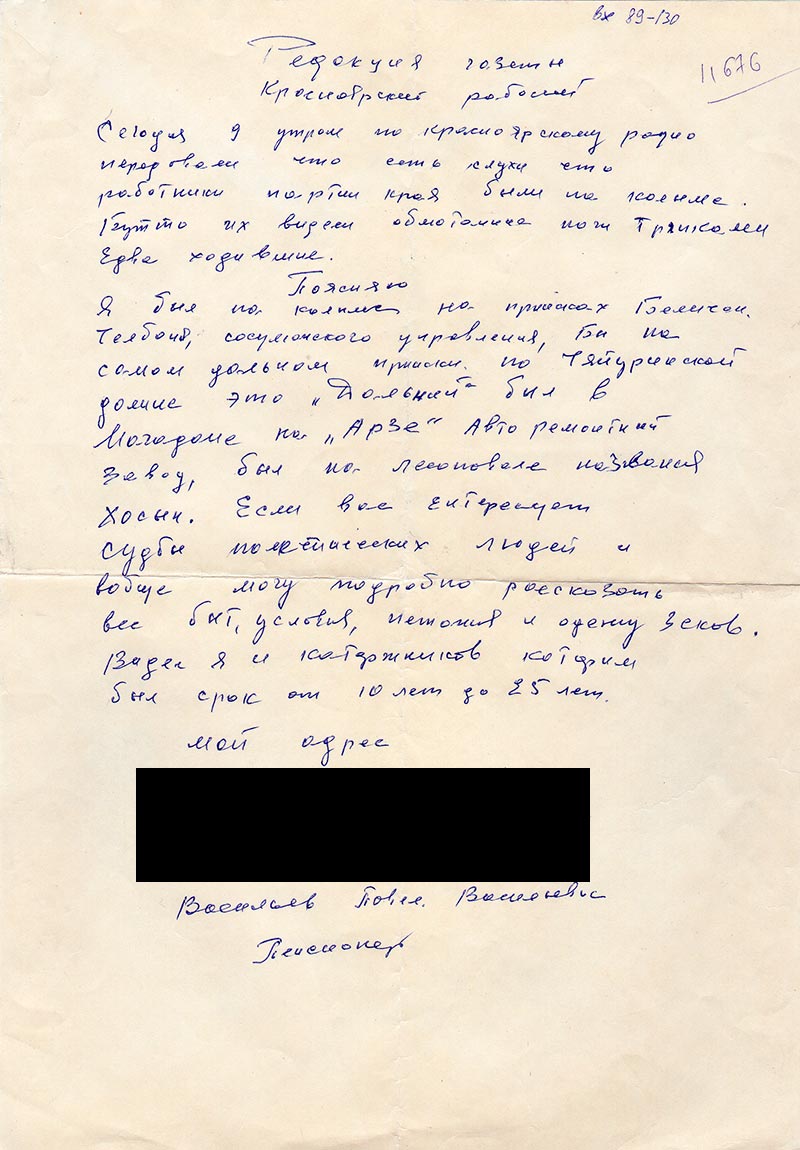 вх 89-130
11676
Редакция газеты
Красноярский рабочий
Сегодня 9 утром по красноярскому радио
передовали что есть слухи что
работники партии края были на колыме.
Буtто их видели обмотанные ноги Тряпками
Едва ходившие.
Поясняю
Я был на колыме на приисках Беличан.
Челбаня, сосуманского управления, Был на
самом дальном прииски. по Тяйуринской
долине это „Дальний" был в
Магадане на „Арзе" Авто ремонтний
завод, был на лесоповале названия
Хосын. Если вас Ентересует
судбы политических людей и
вобще могу подробно рассказать
вес быт, условия, питания и одежу Зеков.
Видел я и каторжников которим
был срок от 10 лет до 25 лет.
мой адрес
Васильев Павел. Васильевич
Пенсионер